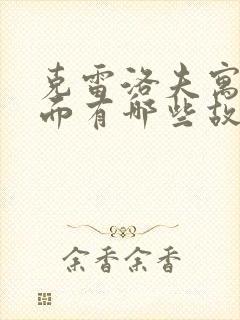 克雷洛夫寓
而有哪些故
余香余香